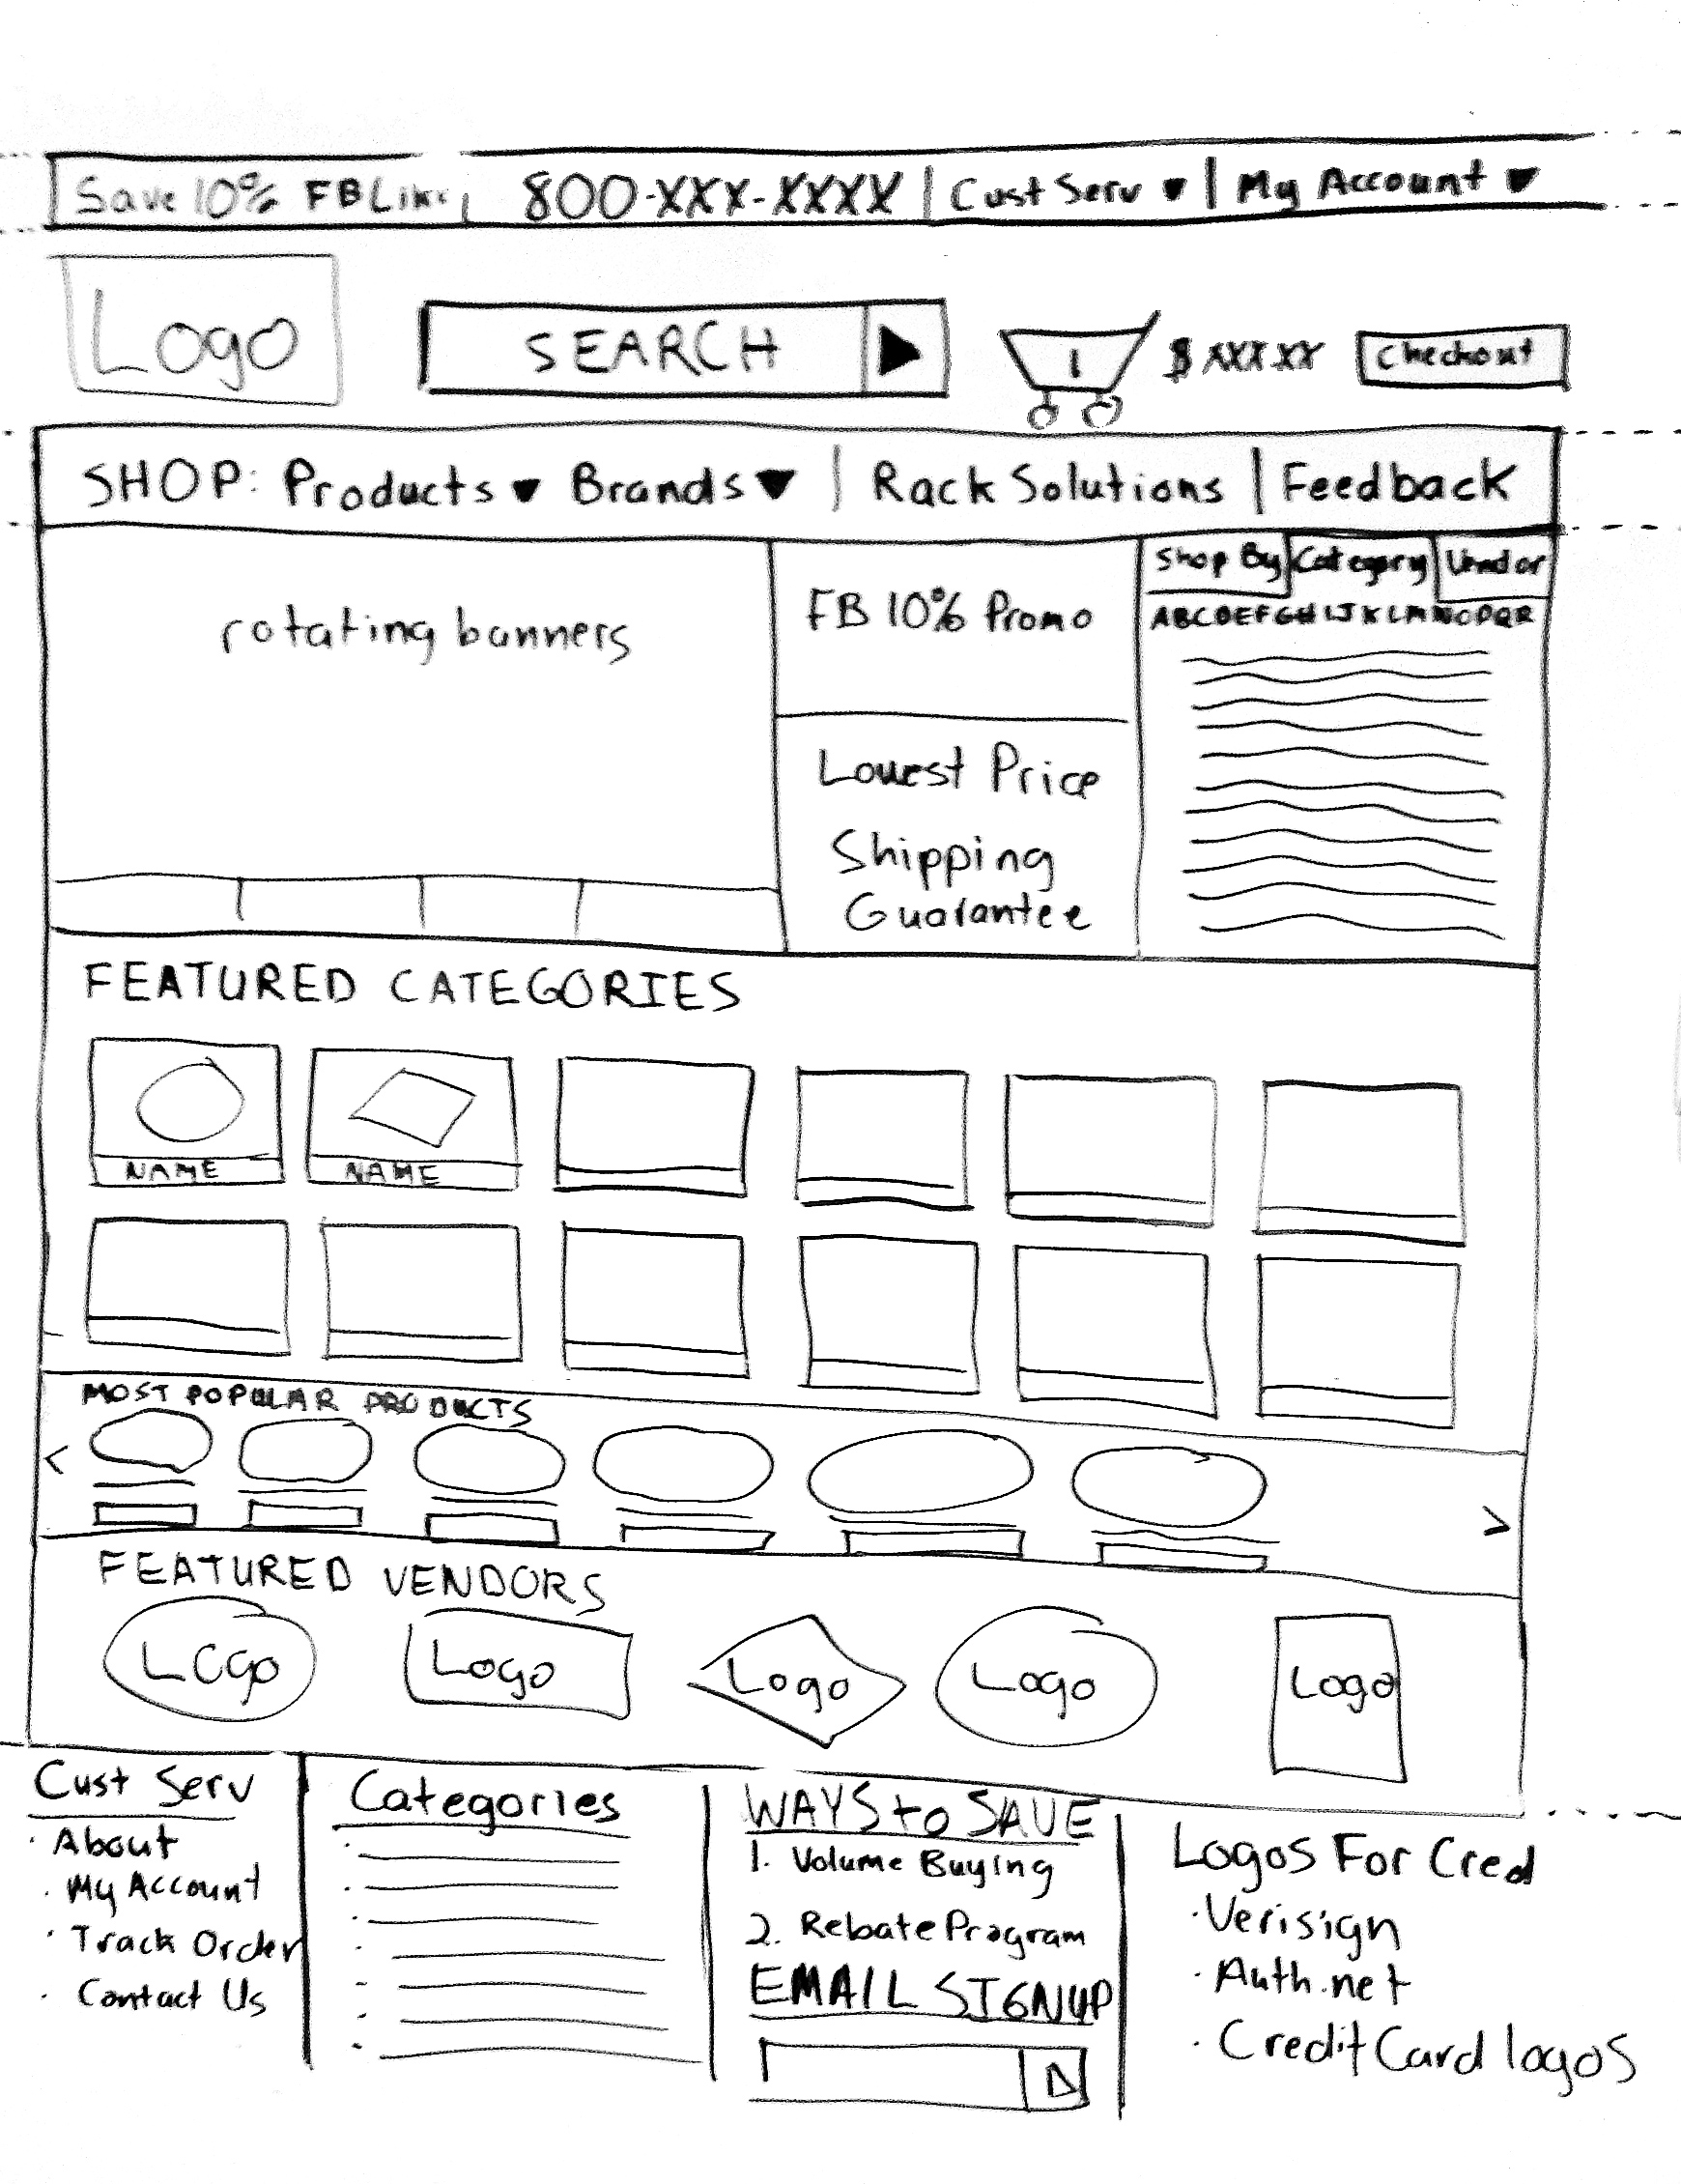 Save 10% FB Like | 800-XXX-XXXX | Cust Serv ▼ | My Account ▼
Logo
SEARCH
1
$ XXX XX
Checkout
SHOP: Products ▼ Brands ▼ | Rack Solutions | Feedback
rotating banners
FB 10% Promo
Lowest Price
Shipping
Guarantee
Shop By Category Vendor
ABCDEFGHIJKLMNOPQR
FEATURED CATEGORIES
NAME
NAME
MOST POPULAR PRODUCTS
<
>
FEATURED VENDORS
Logo
Logo
Logo
Logo
Logo
Cust Serv
· About
· My Account
· Track Order
· Contact Us
Categories
WAYS to SAVE
1. Volume Buying
2. Rebate Program
EMAIL SIGNUP
Logos For Cred
· Verisign
· Auth.net
· Credit Card logos